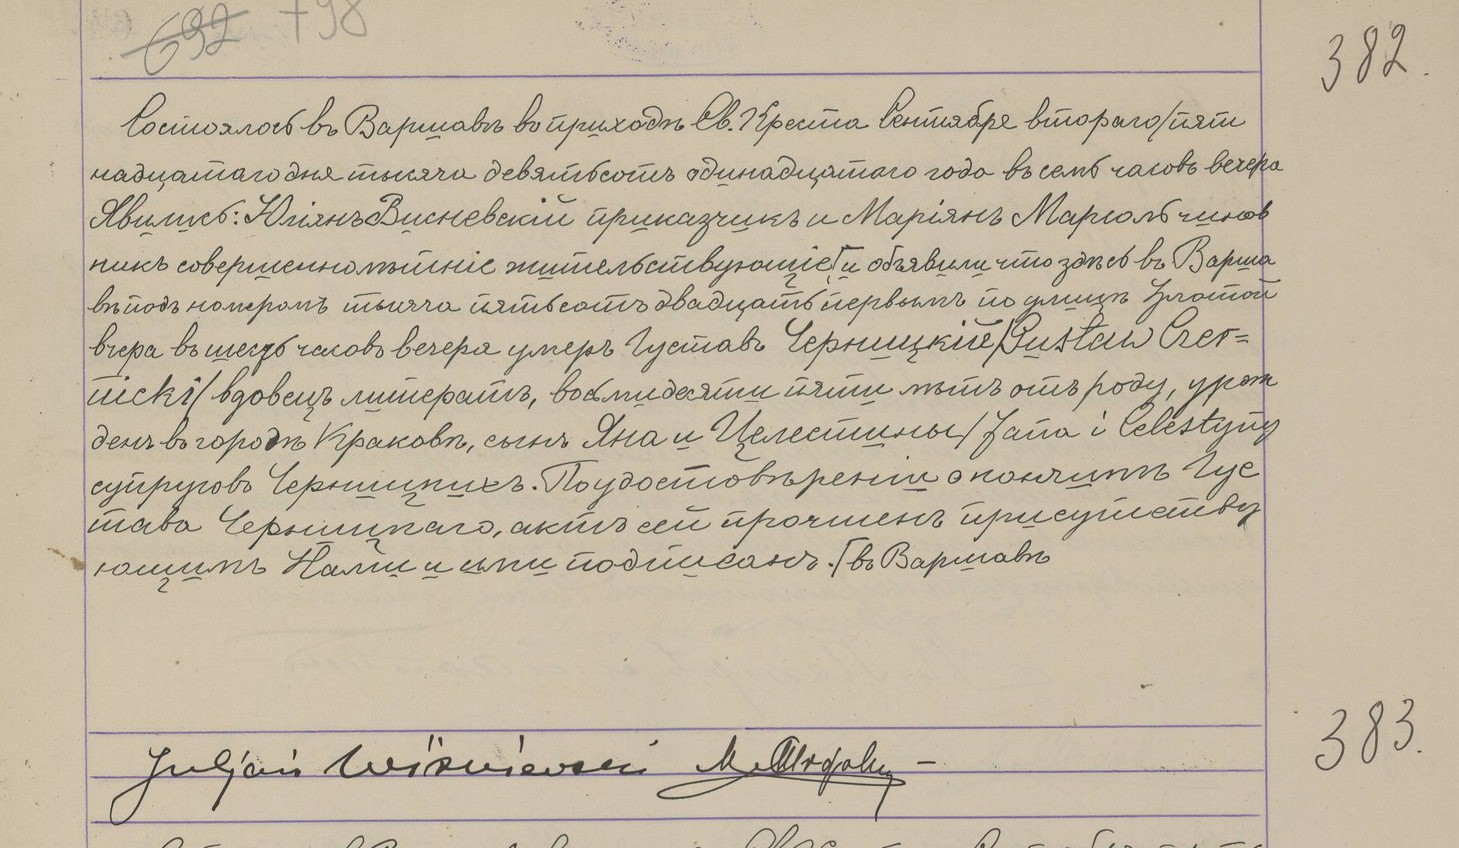 692 798
382.
Состоялось въ Варшавѣ въ приходѣ Св. Креста Сентября втораго/пят
надцатаго дня тысяча девятьсотъ одинадцатаго года въ семь часовъ вечера
Явились: Юліянъ Висневскій приказчикъ и Маріянъ чинов
никъ совершеннолѣтніе жительствующіе/ и объявили что здѣсь въ Варша
вѣ подъ номеромъ тысяча пятьсотъ двадцать первымъ по улицѣ Златой
вчера въ шесть часовъ вечера умеръ Густавъ Черницкій/Gustaw Czer=
nicki/ вдовецъ литератъ, восьмидесяти пяти лѣтъ отъ роду, урож
денъ въ городѣ Краковѣ, сынъ Яна и Целестины/Jana i Celestyny
супруговъ Черницкихъ. По удостовѣреніи о кончинѣ Гус
тава Черницкаго, актъ сей прочтенъ присутству
ющимъ Нами и ими подписанъ. /въ Варшавѣ
Juljan Wiśniewski M.
383.